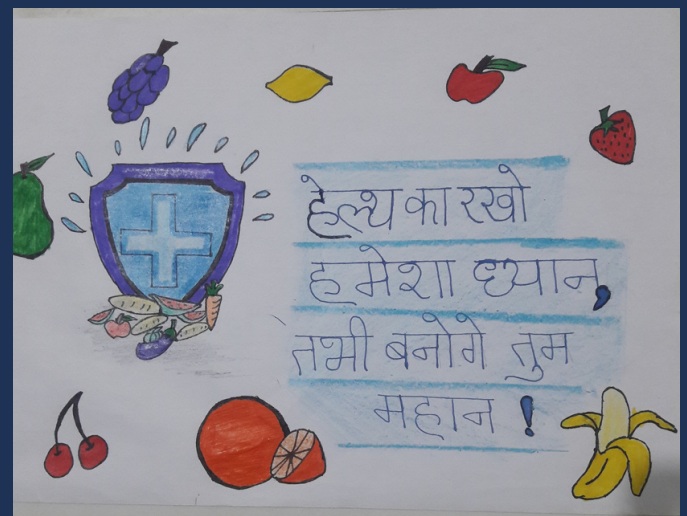 हेल्थ का रखो
हमेशा ध्यान,
तभी बनोगे तुम
महान !